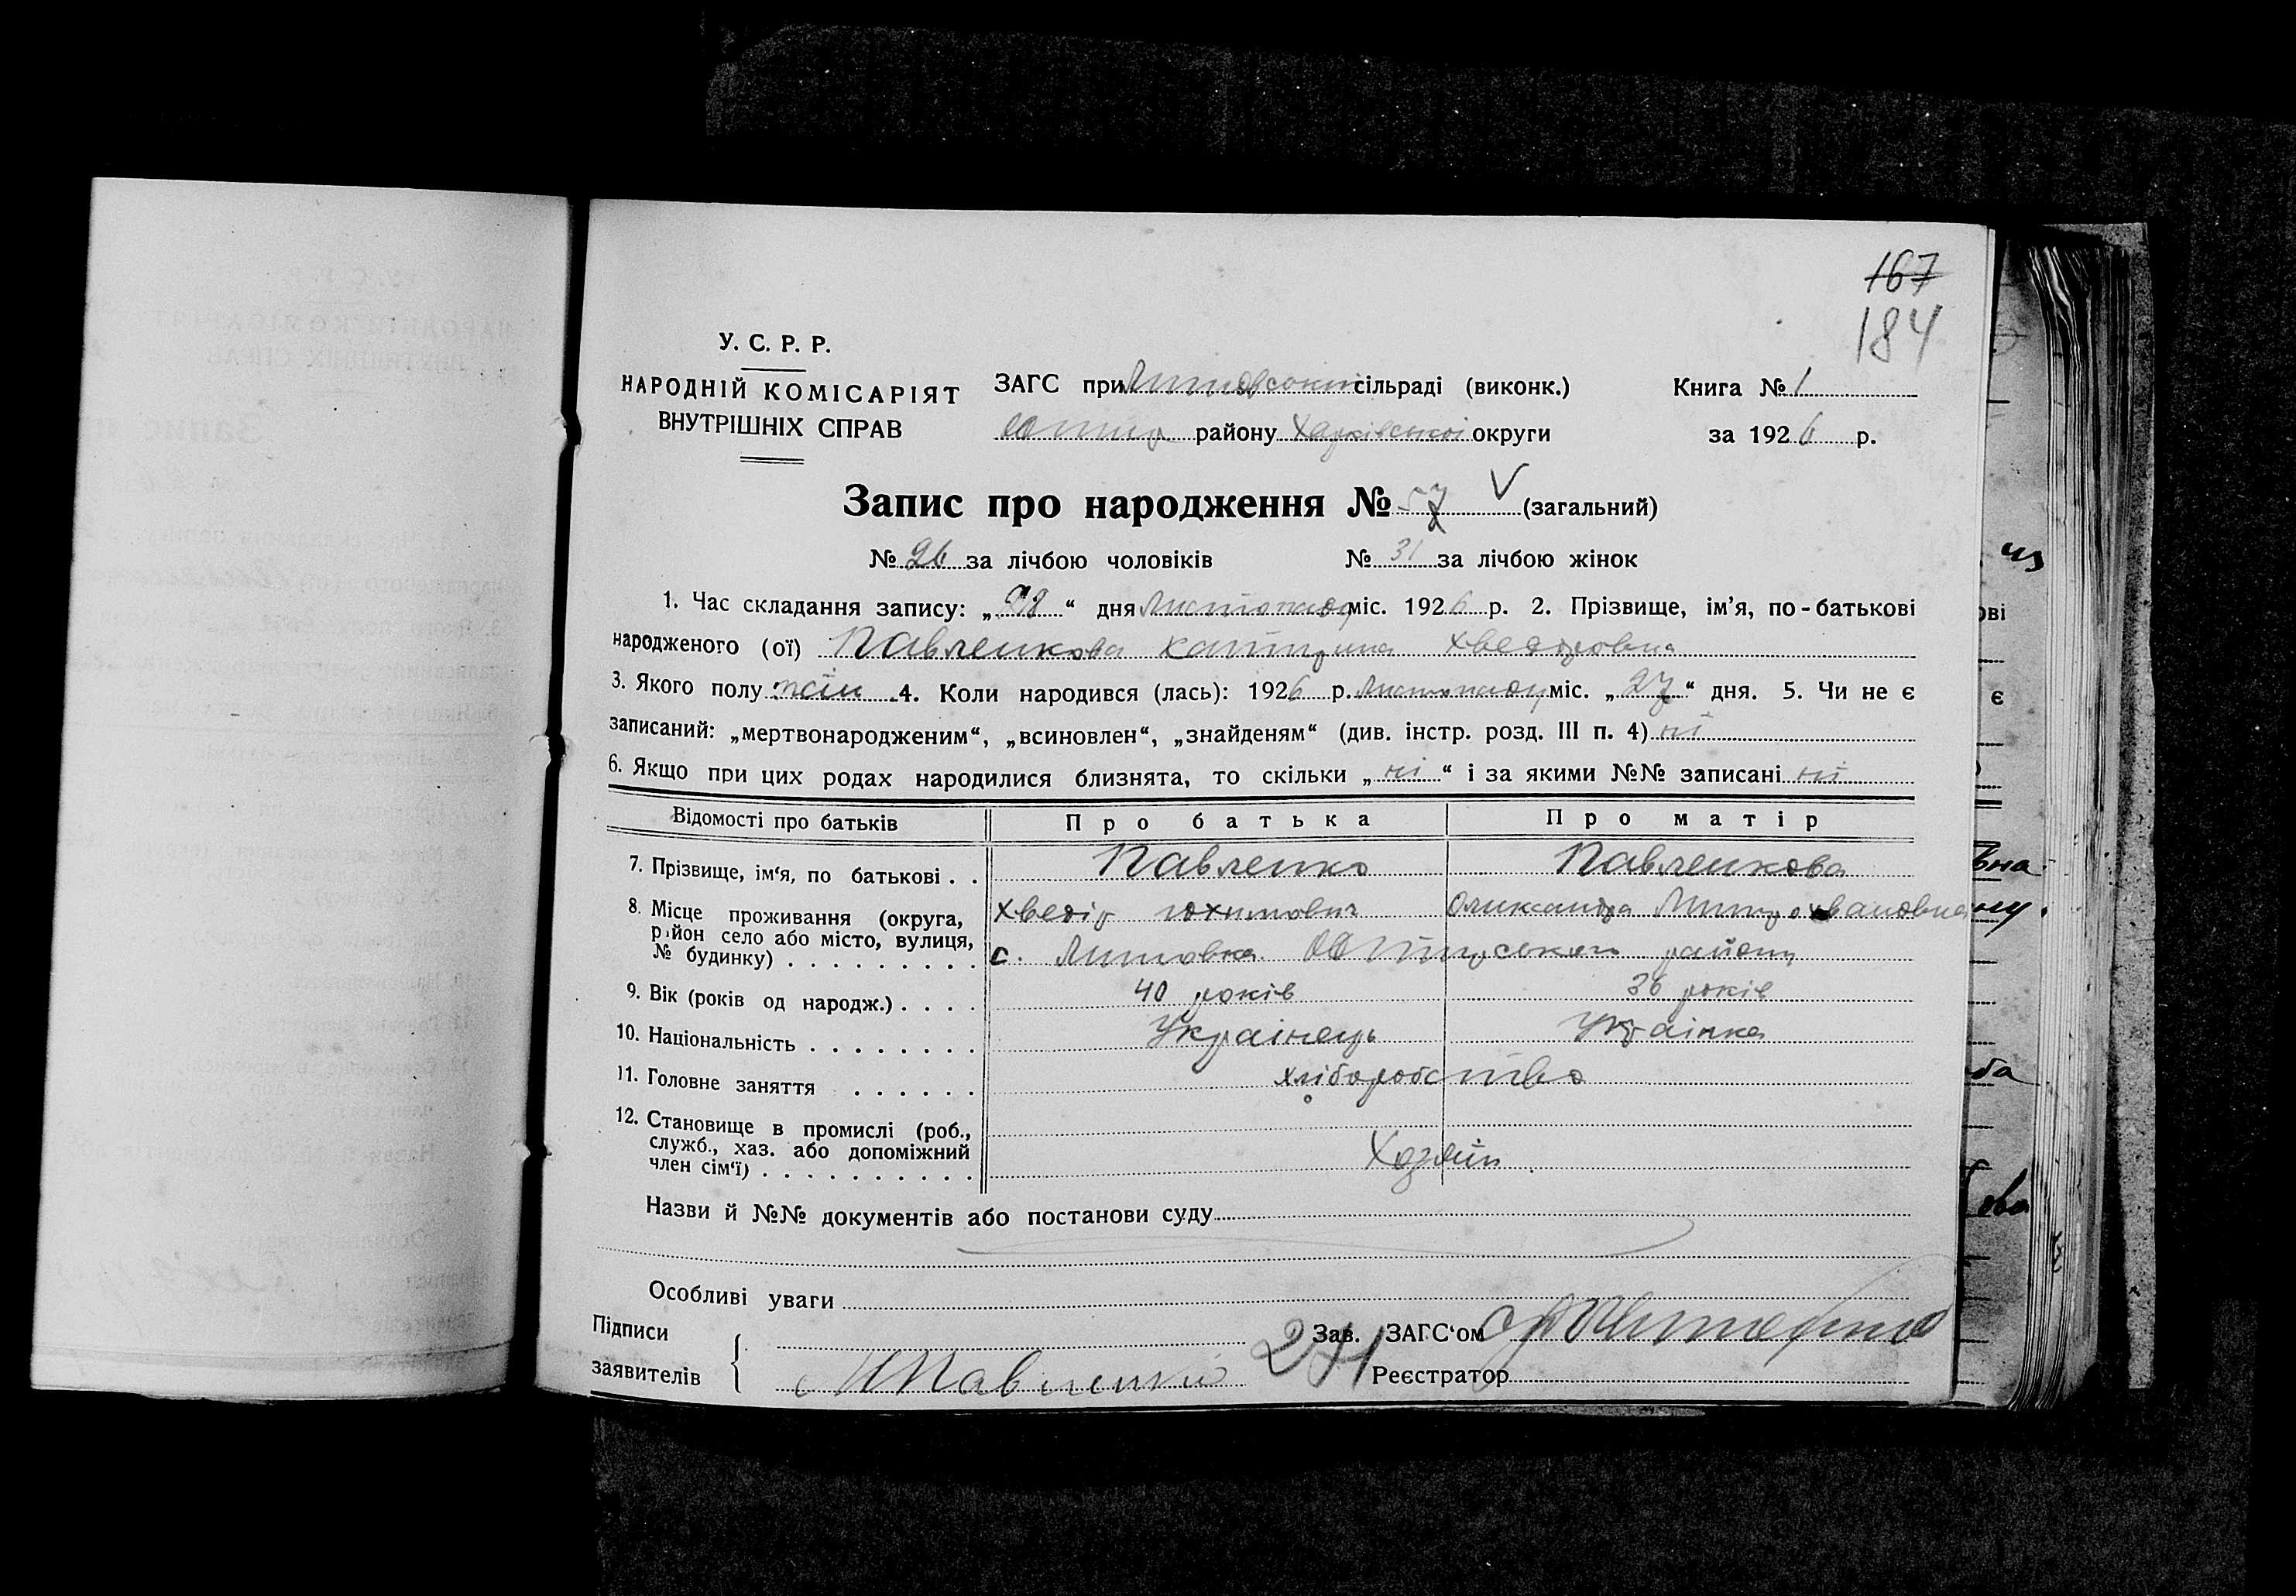 167
184
У. С. Р. Р.
НАРОДНІЙ КОМІСАРІЯТ
ВНУТРІШНІХ СПРАВ
ЗАГС при сільраді (виконк.)
району Харківської округи
Книга № 1
за 1926 р.
Запис про народження № 57 V (загальний)
№ 26 за лічбою чоловіків № 31 за лічбою жінок
1. Час складання запису: „28“ дня Листопаду міс. 1926 р. 2. Прізвище, ім’я, по-батькові
народженого (ої) Павленкова Катирина Хведоровна
3. Якого полу жін 4. Коли народився (лась): 1926 р. Листопаду міс. „27“ дня. 5. Чи не є
записаний: „мертвонародженим“, „всиновлен“, „знайденям“ (див. інстр. розд. III п. 4) ні
6. Якщо при цих родах народилися близнята, то скільки „ні“ і за якими №№ записані ні
Відомості про батьків Про батька Про матір
7. Прізвище, ім‘я, по батькові . . Павленко Павленкова
Хведір Юхимович Олександра
8. Місце проживання (округа,
район село або місто, вулиця,
№ будинку) . . . . . . . . . с. Лютовка району
9. Вік (років од народж.) . . . . 40 років 36 років
10. Національність . . . . . . . . Українець Українка
11. Головне заняття . . . . . . хліборобство
12. Становище в промислі (роб.,
служб., хаз. або допоміжний
член сім‘ї) . . . . . . . . . . Хозяїн
Назви й №№ документів або постанови суду
Особливі уваги
Підписи
заявителів
Павленко
271
Зав. ЗАГС‘ом
Реєстратор